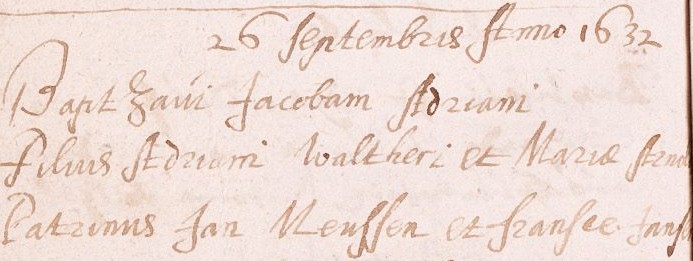 26 septembris Anno 1632
Baptizavi Jacobam Adriani
Filius Adriani Waltheri et Mariæ
Patrinus Jan Neussen et fransce Jans